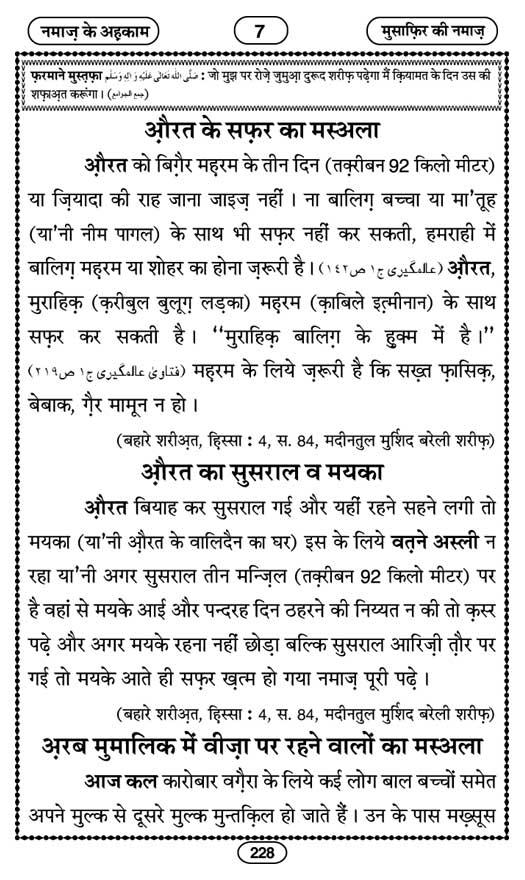 नमाज़ के अह़काम
7
मुसाफ़िर की नमाज़
फ़रमाने मुस्त़फ़ा صَلَّى اللّٰه تَعَالٰى عَلَيْهِ وَاٰلِهٖ وَسَلَّم : जो मुझ पर रोज़े जुमुआ़ दुरूद शरीफ़ पढ़ेगा मैं क़ियामत के दिन उस की
शफ़ाअ़त करूंगा। (جمع الجوامع)
औ़रत के सफ़र का मस्अला
औ़रत को बिग़ैर मह़रम के तीन दिन (तक़्रीबन 92 किलो मीटर)
या ज़ियादा की राह जाना जाइज़ नहीं । ना बालिग़ बच्चा या मा'तूह
(या'नी नीम पागल) के साथ भी सफ़र नहीं कर सकती, हमराही में
बालिग़ मह़रम या शोहर का होना ज़रूरी है। (عالمگیری ج١ ص١٤٢) औ़रत,
मुराहिक़ (क़रीबुल बुलूग़ लड़का) मह़रम (क़ाबिले इत़्मीनान) के साथ
सफ़र कर सकती है। ‘‘मुराहिक़ बालिग़ के हुक्म में है।’’
(فتاویٰ عالمگیری ج١ ص٢١٩) मह़रम के लिये ज़रूरी है कि सख़्त फ़ासिक़,
बेबाक, ग़ैर मामून न हो ।
(बहारे शरीअ़त, हि़स्सा : 4, स. 84, मदीनतुल मुर्शिद बरेली शरीफ़)
औ़रत का सुसराल व मयका
औ़रत बियाह कर सुसराल गई और यहीं रहने सहने लगी तो
मयका (या'नी औ़रत के वालिदैन का घर) इस के लिये वत़ने अस्ली न
रहा या'नी अगर सुसराल तीन मन्ज़िल (तक़्रीबन 92 किलो मीटर) पर
है वहां से मयके आई और पन्दरह दिन ठहरने की निय्यत न की तो क़स्र
पढ़े और अगर मयके रहना नहीं छोड़ा बल्कि सुसराल आरिज़ी त़ौर पर
गई तो मयके आते ही सफ़र ख़त्म हो गया नमाज़ पूरी पढ़े ।
(बहारे शरीअ़त, हि़स्सा : 4, स. 84, मदीनतुल मुर्शिद बरेली शरीफ़)
अ़रब मुमालिक में वीज़ा पर रहने वालों का मस्अला
आज कल कारोबार वग़ैरा के लिये कई लोग बाल बच्चों समेत
अपने मुल्क से दूसरे मुल्क मुन्तक़िल हो जाते हैं । उन के पास मख़्सूस
228